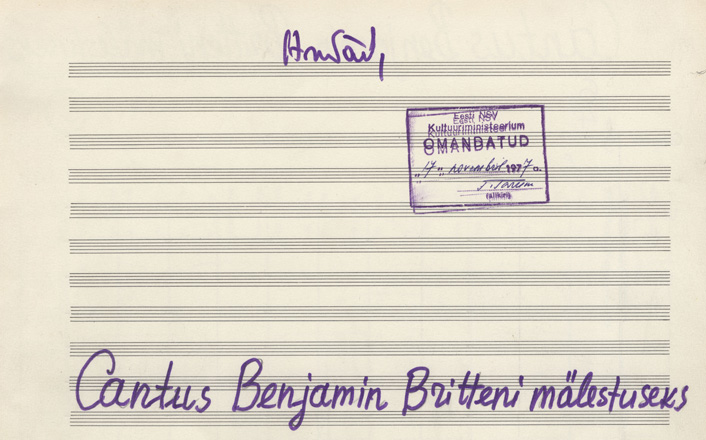 Eesti NSV
Kultuuriministeerium
OMANDATUD
"17" novembril 1977 a.
(allkiri)
Cantus Benjamin Britteni mälestuseks